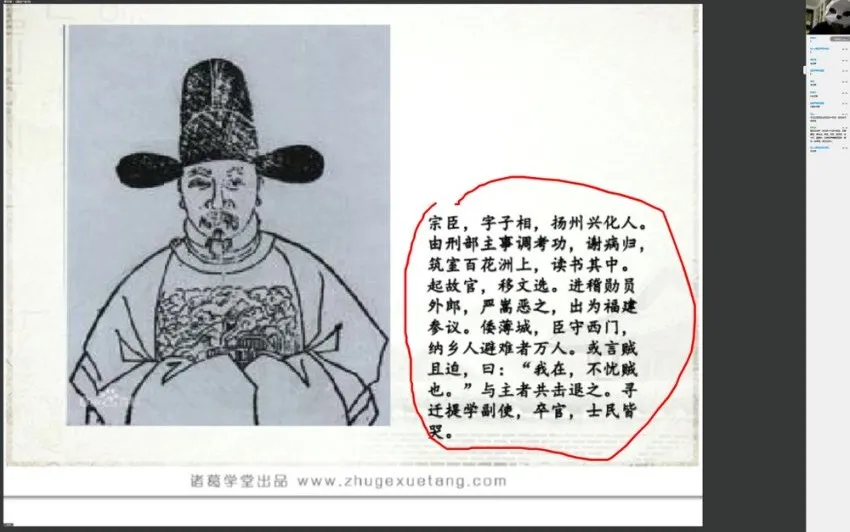 宗臣，字子相，扬州兴化人。
由刑部主事调考功，谢病归，
筑室百花洲上，读书其中。
起故官，移文选。进稽勋员
外郎，严嵩恶之，出为福建
参议。倭薄城，臣守西门，
纳乡人避难者万人。或言贼
且迫，曰：“我在，不忧贼
也。”与主者共击退之。寻
迁提学副使，卒官，士民皆
哭。
诸葛学堂出品 www.zhugexuetang.com